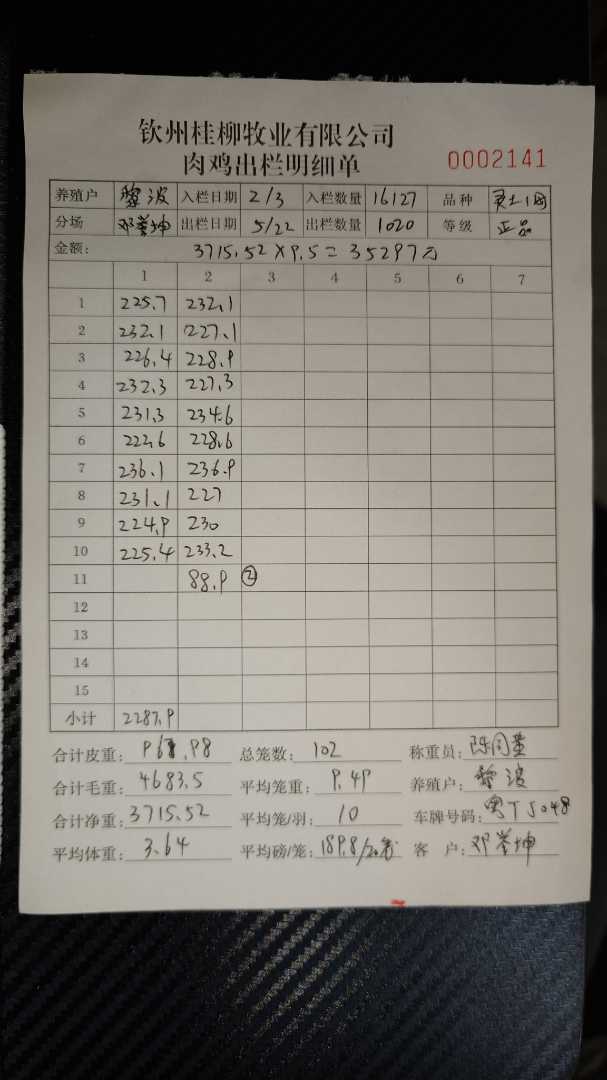 钦州桂柳牧业有限公司
肉鸡出栏明细单 0002141
养殖户 黎波 入栏日期 2/3 入栏数量 16127 品种
分场 邓誉坤 出栏日期 5/22 出栏数量 1020 等级 正品
金额: 3715.52×9.5=35297元
1 2 3 4 5 6 7
1 225.7 232.1
2 232.1 227.1
3 226.4 228.9
4 232.3 227.3
5 231.3 234.6
6 222.6 228.6
7 236.1 236.9
8 231.1 227
9 224.9 230
10 225.4 233.2
11 88.9 ②
12
13
14
15
小计 2287.9
合计皮重: 967.98 总笼数: 102 称重员:
合计毛重: 4683.5 平均笼重: 9.49 养殖户: 黎波
合计净重: 3715.52 平均笼/羽: 10 车牌号码: 粤T5048
平均体重: 3.64 平均磅/笼: 189.8/20羽 客户: 邓誉坤